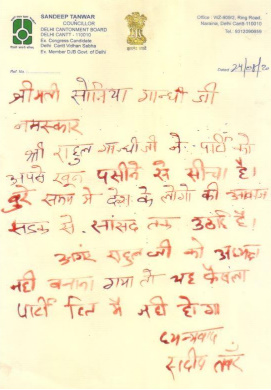 SANDEEP TANWAR
COUNCILLOR
DELHI CANTONMENT BOARD
DELHI CANTT - 110010
Ex. Congress Candidate
Delhi Cantt Vidhan Sabha
Ex. Member DJB Govt. of Delhi
Office : WZ-90/62, Ring Road,
Naraina, Delhi Cantt 110010
Ref. No.
Dated 24/08/20
श्रीमती सोनिया गान्धी जी
नमस्कार
श्री राहुल गान्धी जी ने पार्टी को
अपने खून पसीने से सींचा है।
बुरे समय मे देश के लोगो की आवाज
सडक से सांसद तक उठाई है।
अगर राहुल जी को अध्यक्ष
नही बनाया गया तो यह फैसला
पार्टी हित मै नही होगा
धन्यवाद
संदीप तंवर